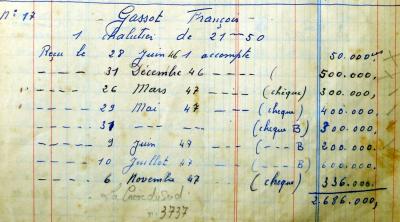 N° 17 Gassot François
1 chalutier de 21-50
Reçu le 28 Juin 46 1 accompte 50.000
---- 31 Décembre 46 --- ( 500.000,
---- 26 Mars 47 (chèque) 300.000,
---- 29 Mai 47 --- (chèque 400.000,
---- 31 -- --- (chèque B) 300.000,
---- 9 Juin 47 (--- B 200.000,
---- 10 Juillet 47 --- ( -- B) 600.000,
---- 6 Novembre 47 (chèque) 336.000,
La Croix du Sud 2.686.000,
n° 3737